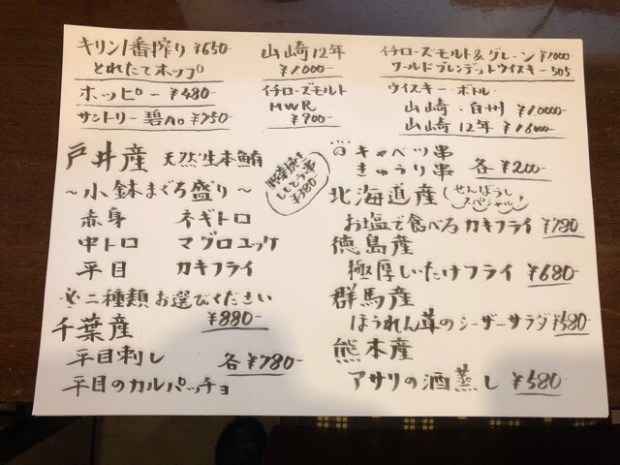 キリン1番搾り ¥650-
とれたてホップ
ホッピー ¥480-
サントリー 碧Ao ¥750
山崎12年
¥1000-
イチローズモルト
MWR
¥900-
イチローズモルト&グレーン ¥1000
ワールドブレンデットウイスキー505
ウイスキーボトル
山崎・白州 ¥10000-
山崎12年 ¥18000-
戸井産 天然生本鮪
~小鉢まぐろ盛り~
赤身 ネギトロ
中トロ マグロユッケ
平目 カキフライ
※二種類お選びください
¥880-
千葉産
平目刺し 各¥780-
平目のカルパッチョ
¥380
キャベツ串
きゅうり串 各¥200-
北海道産 せんぽうし
スペシャル!
お塩で食べるカキフライ ¥780
徳島産
極厚しいたけフライ ¥680-
群馬産
ほうれん茸のシーザーサラダ ¥580
熊本産
アサリの酒蒸し ¥580-